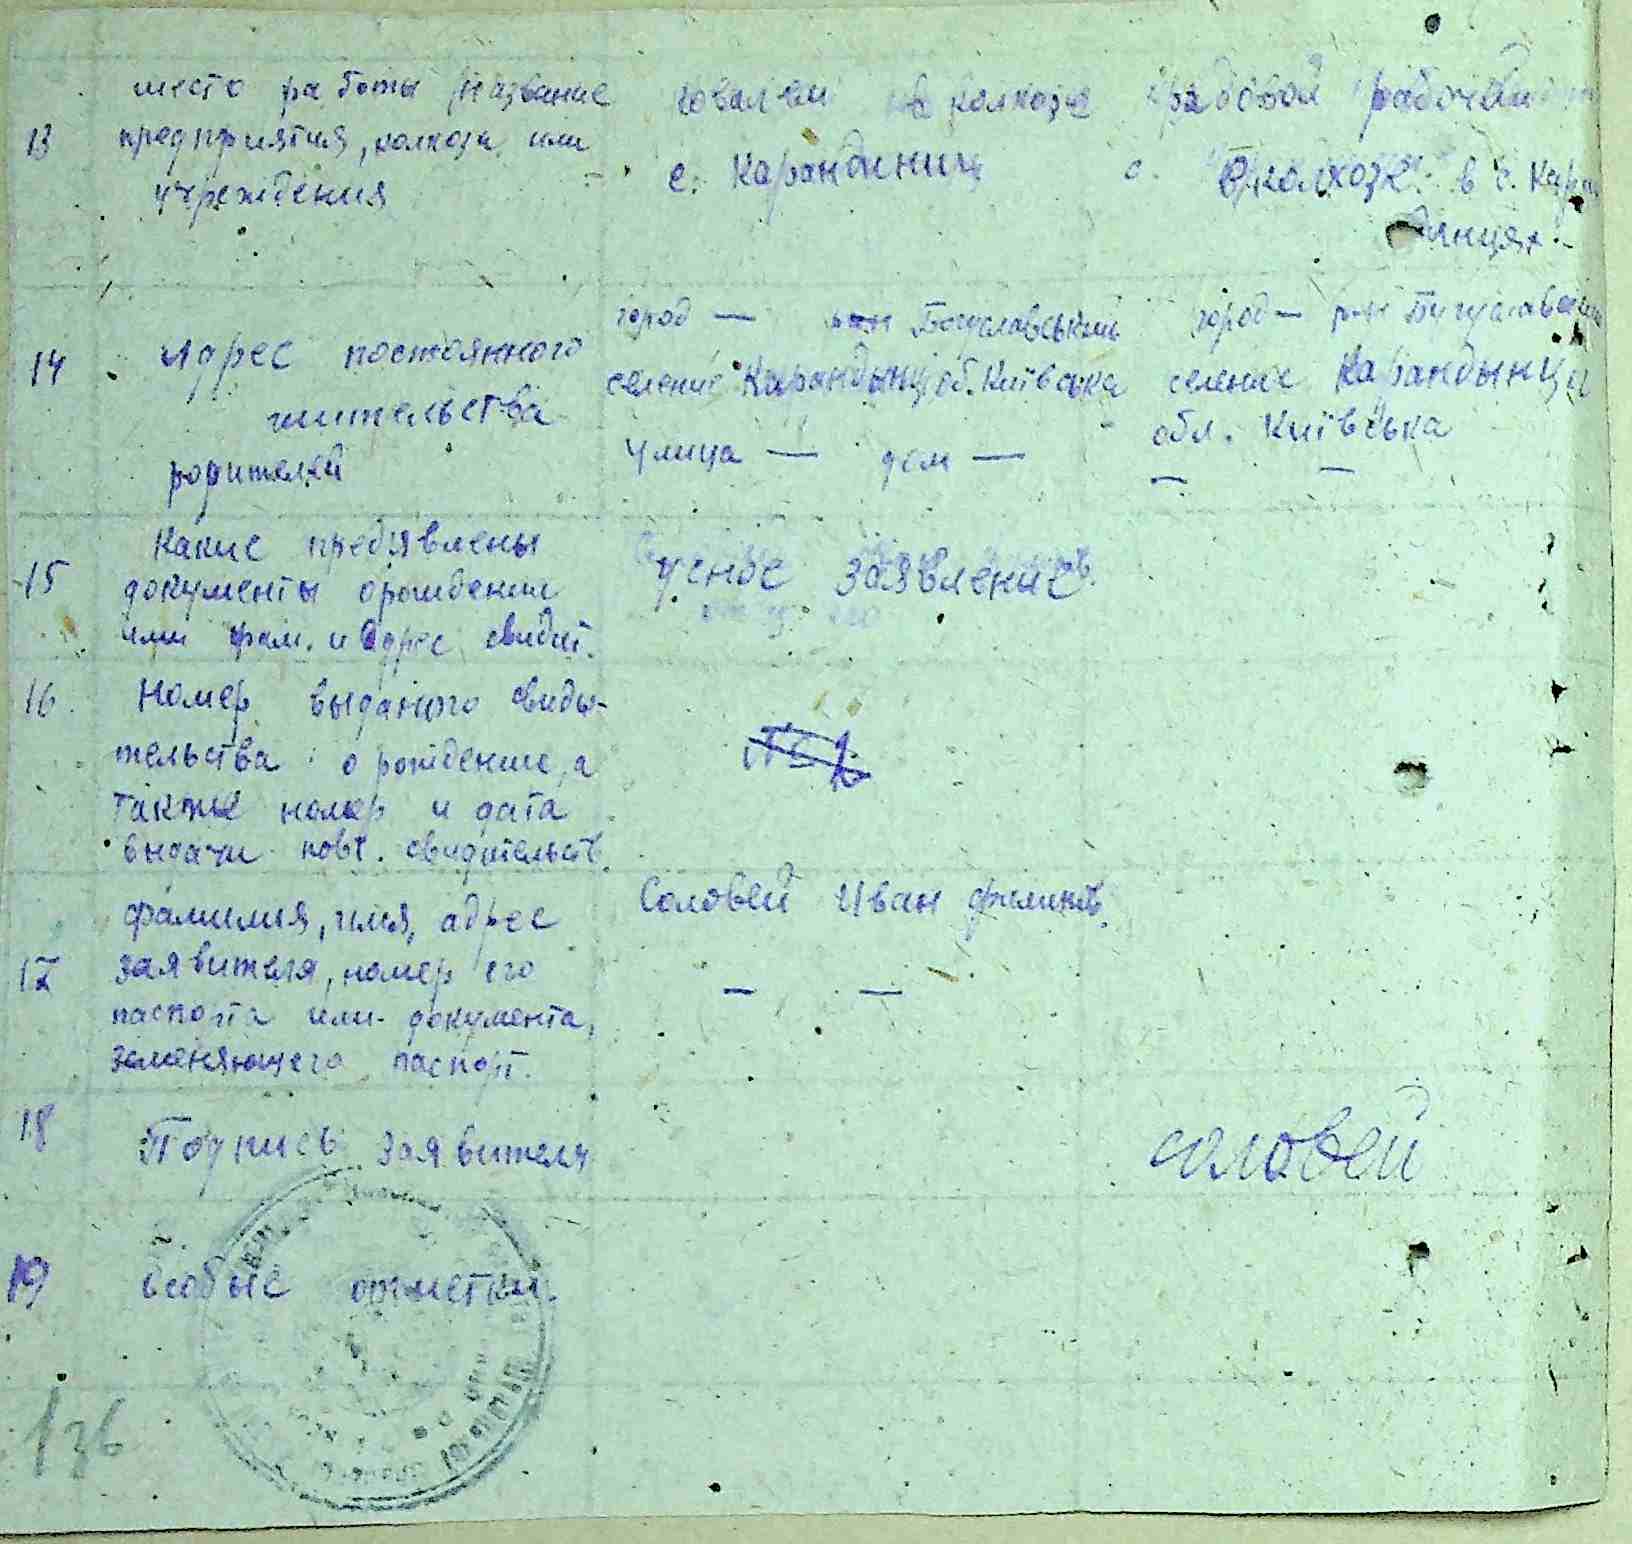 13 место работы (название предприятия, колхоза или учреждения
ковалем в колхозе
с. Карандинец
рядовой рабочий
с. в колхозе в с. Каран
динцях.
14 Адрес постоянного
жительства
родителей
город — р-н Богуславський
селение Карандынц об. Київська
улица — дом —
город — р-н Бугуславський
селение Карандынця
обл. Київська
— —
15 Какие предявлены
документы орождении
или фам. и адрес свидит.
усное заявление
16. Номер выданого свиды-
тельства о рождение, а
также номер и дата
выдачи повт. свидительств.
№ 1
17 фамилия, имя, адрес
заявителя, номер его
паспорта или документа,
заменяющего паспорт.
Соловей Иван
— —
18 Подпись заявителя
соловей
19 Особые отметки.
136